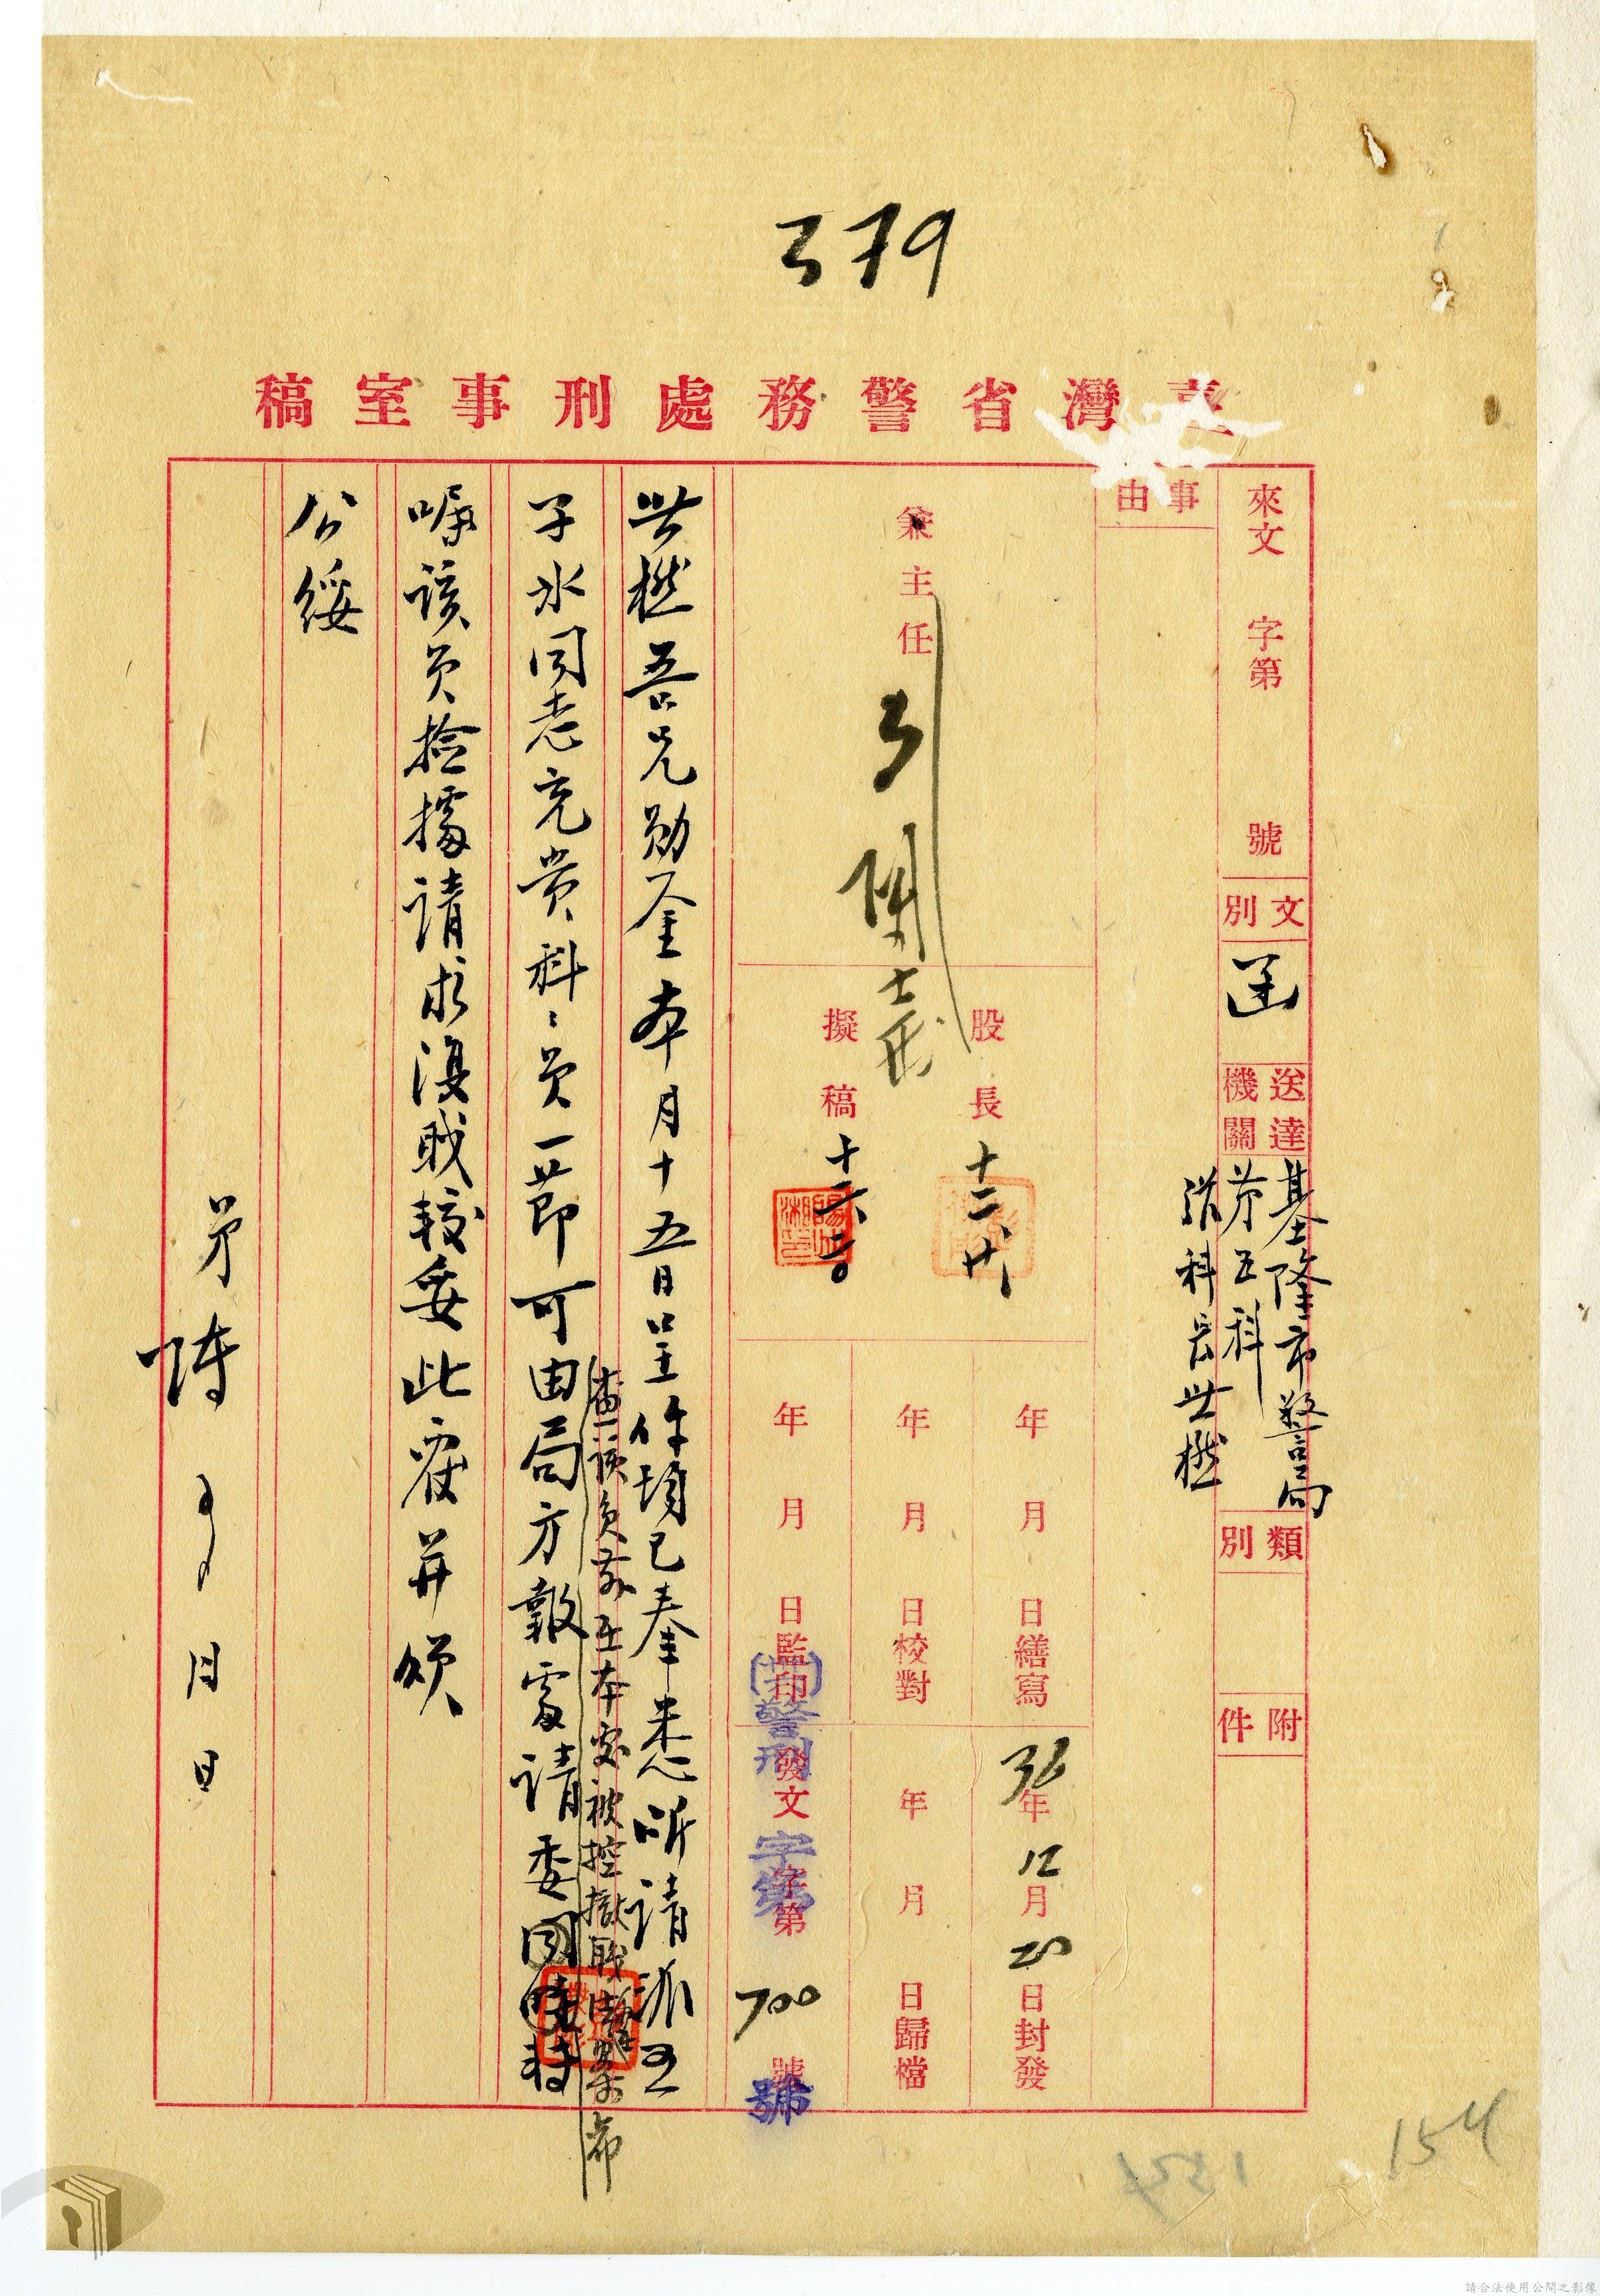 379
臺灣省警務處刑事室稿
來文 字第 號
文別 函
送達機關 基隆市警局
第五科
洪科長世楙
類別
附件
事由
兼主任
股長 十二、廿
擬稿 十二、二〇
年 月 日繕寫
年 月 日校對
年 月 日監印
36年12月20日封發
年 月 日歸檔
(卅)警刑
發文 字第700號
世楙吾兄勛鑒本月十五日呈件均已奉悉所請派王
子水同志充貴科科員一節可由局方報處請委
查該員前在本處被控撤職有案希
囑該員撿據請求復職較妥此覆并頌
公綏
弟陳 月 日
154